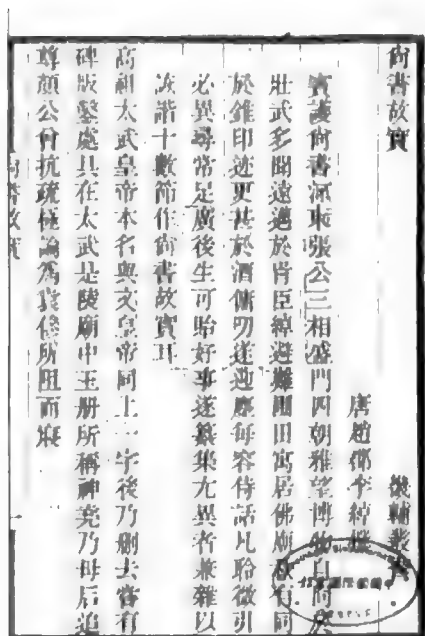 尙書故實 畿輔叢書
唐趙郡李綽撰
賓護尙書河東張公三相盛門四朝雅望博物
壯武多聞遠邁於胥臣綽避難圃田寓居佛廟秩有同
於錐印迹更甚於酒傭叨遂迎塵每容侍話凡聆徵引
必異尋常足廣後生可貽好事遂纂集尤異者兼雜以
詼諧十數節作尙書故實耳
高祖太武皇帝本名與文皇帝同上一字後乃刪去嘗有
碑版鑿處具在太武是陵廟中玉册所稱神堯乃母后追
尊顏公曾抗疏極論爲袁傪所阻而寢
尙書故實